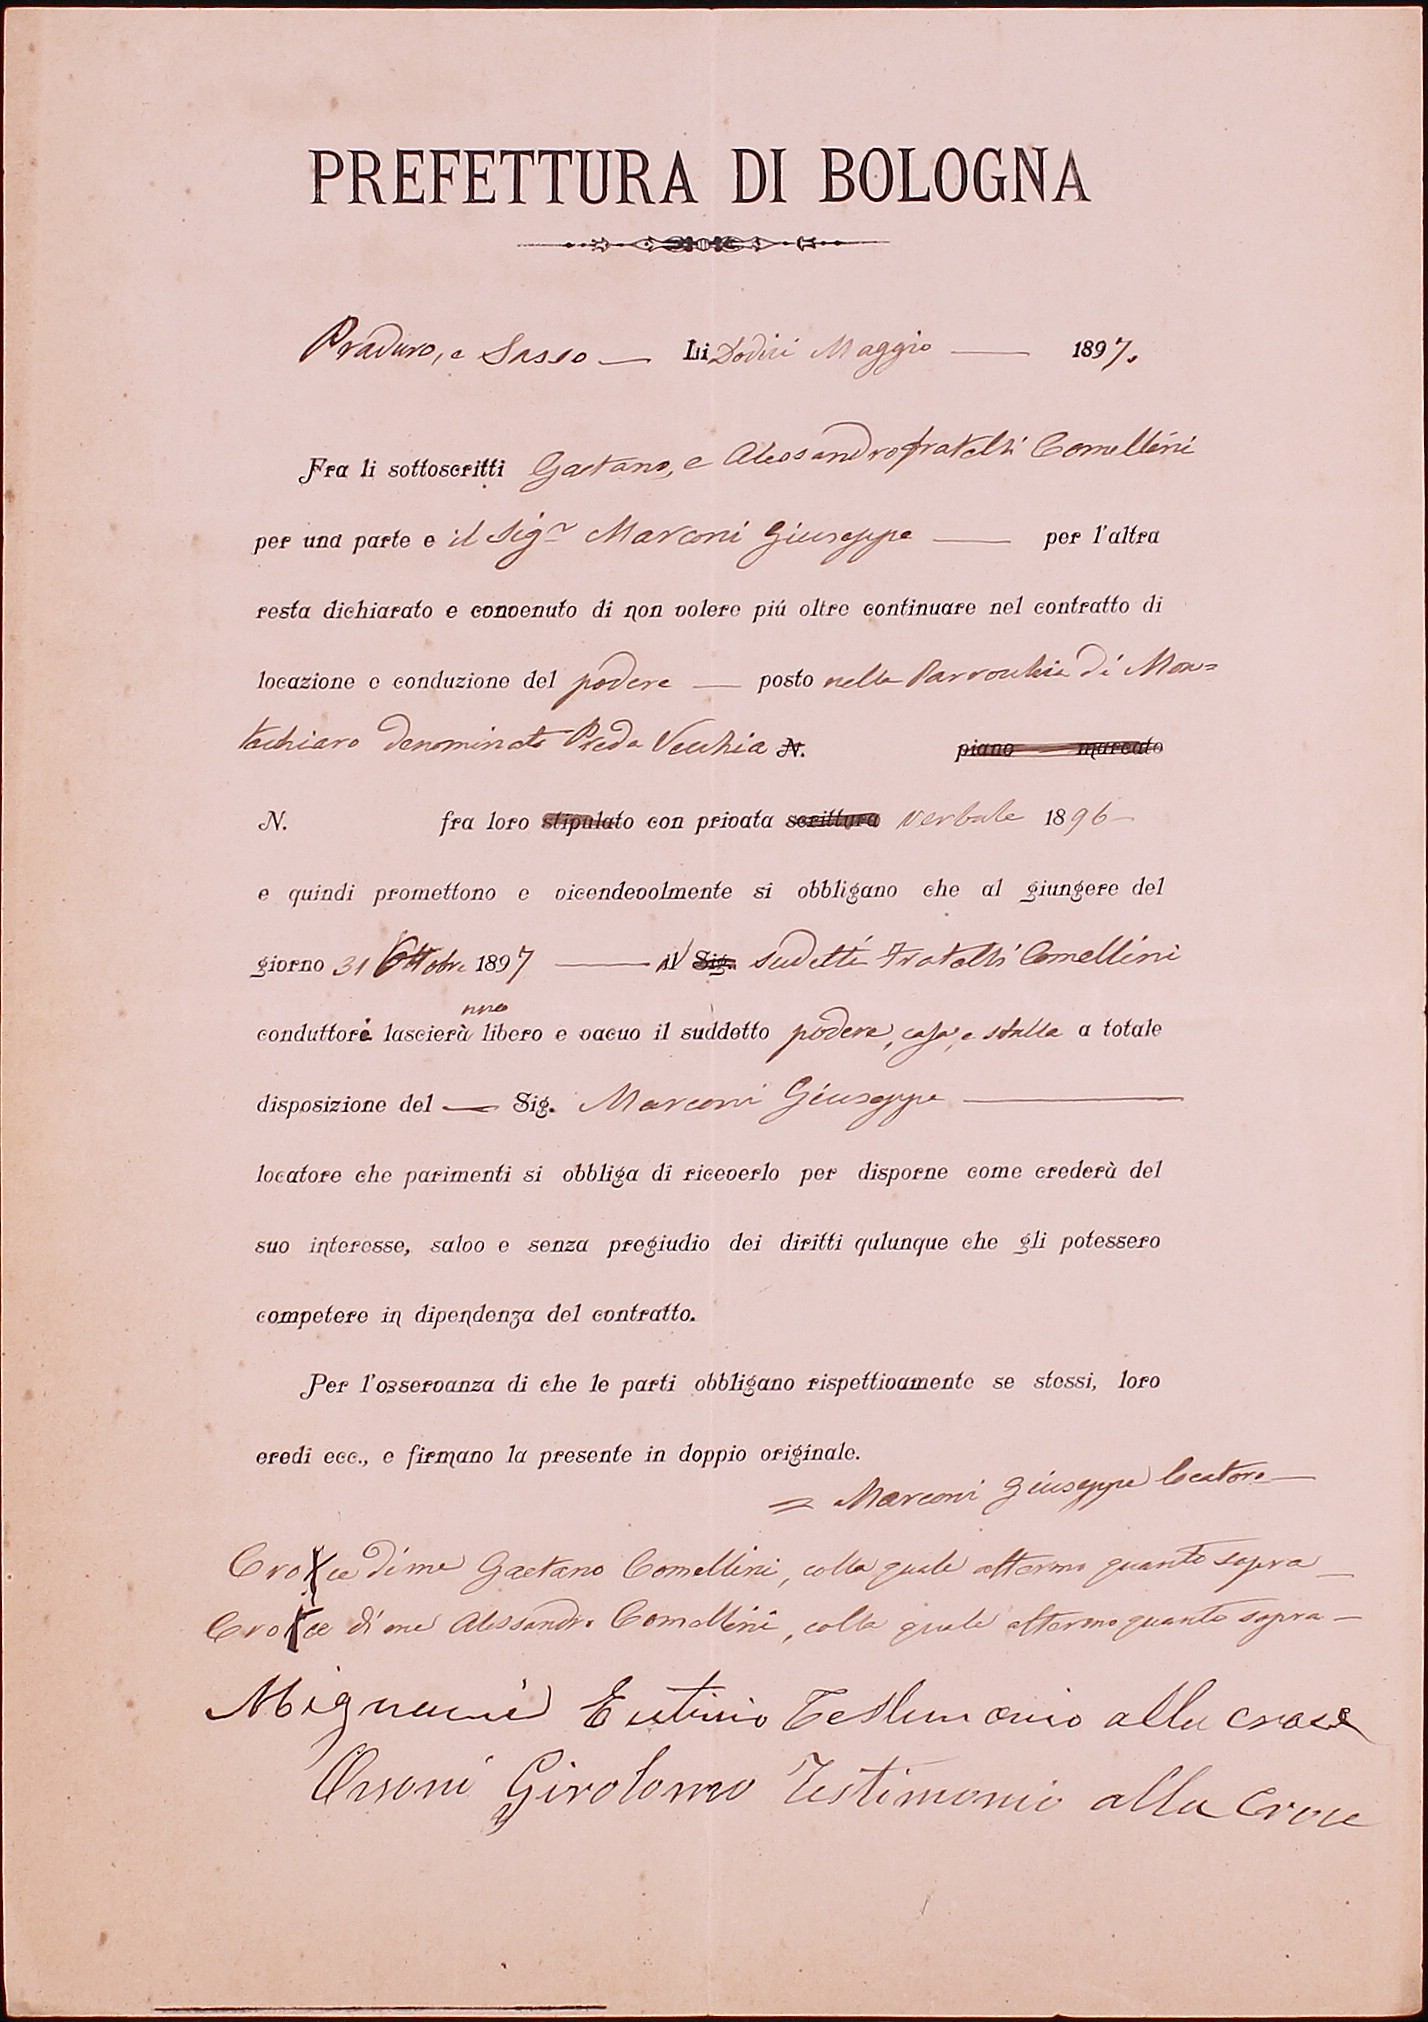 PREFETTURA DI BOLOGNA
Praduro, e Sasso — Li Dodici Maggio — 1897.
Fra li sottoscritti Gaetano, e Alessandro fratelli Comellini
per una parte e il Sigr Marconi Giuseppe — per l'altra
resta dichiarato e convenuto di non volere piú oltre continuare nel contratto di
locazione e conduzione del podere — posto nella Parrochia di Mon=
tachiaro denominato Preda Vecchia N. piano marcato
N. fra loro stipulato con privata scrittura verbale 1896 —
e quindi promettono e vicendevolmente si obbligano che al giungere del
giorno 31 Ottobre 1897 — il Sig. sudetti Fratelli Comellini
nno
conduttori lascierà libero e vacuo il suddetto podere, casa, e stalla a totale
disposizione del — Sig. Marconi Giuseppe —
locatore che parimenti si obbliga di riceverlo per disporne come crederà del
suo interesse, salvo e senza pregiudio dei diritti qulunque che gli potessero
competere in dipendenza del contratto.
Per l'osservanza di che le parti obbligano rispettivamente se stessi, loro
eredi ecc., e firmano la presente in doppio originale.
= Marconi Giuseppe locatore —
Cro X ce di me Gaetano Comellini, colla quale affermo quanto sopra —
Cro X ce di me Alessandro Comellini, colla quale affermo quanto sopra —
Mignani Testimonio alla croce
Orsoni Girolomo Testimonio alla Croce